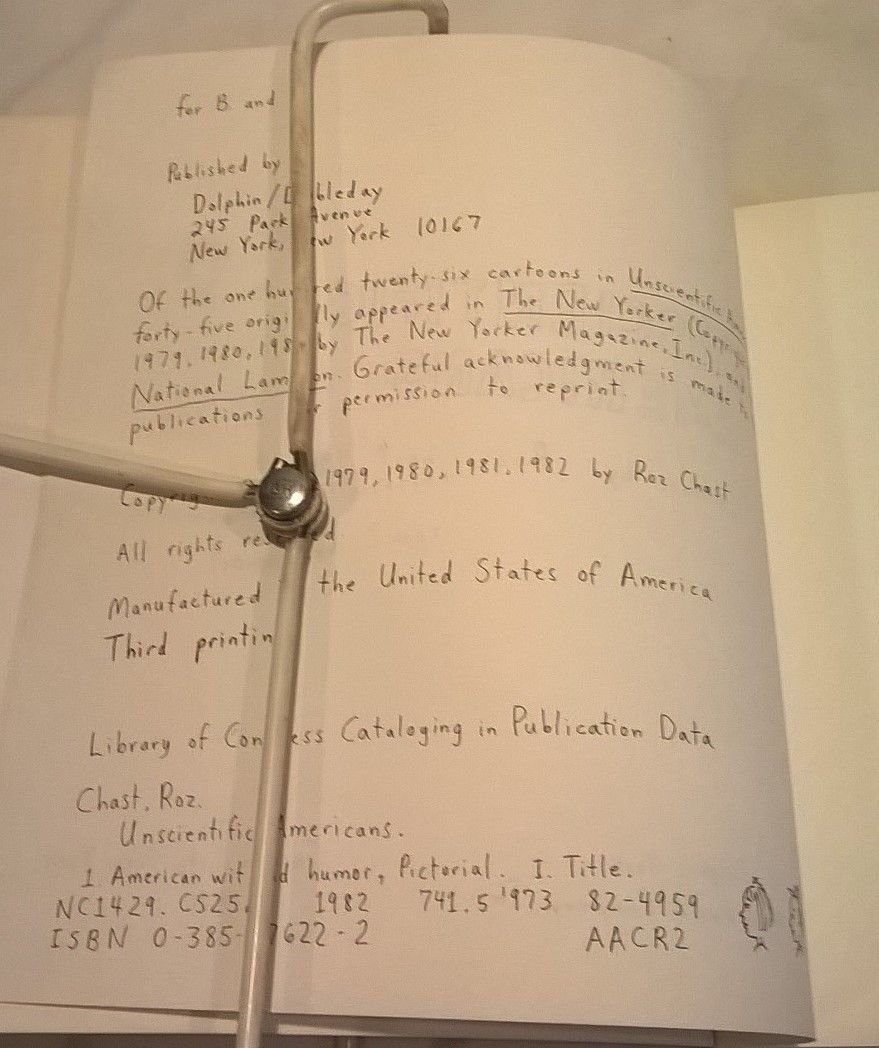 for B and
Published by
Dolphin/D bleday
245 Park Avenue
New York, ew York 10167
Of the one hu red twenty-six cartoons in Unscientific
forty-five origi lly appeared in The New Yorker (Copyright
1979, 1980, 198 by The New Yorker Magazine, Inc.), and
National Lam on. Grateful acknowledgment is made to
publications permission to reprint.
Copyrig 1979, 1980, 1981, 1982 by Roz Chast
All rights re d
Manufactured the United States of America
Third printin
Library of Con ess Cataloging in Publication Data
Chast, Roz.
Unscientific Americans.
1. American wit d humor, Pictorial. I. Title.
NC1429.C525. 1982 741.5'973 82-4959
ISBN 0-385- 7622-2 AACR2